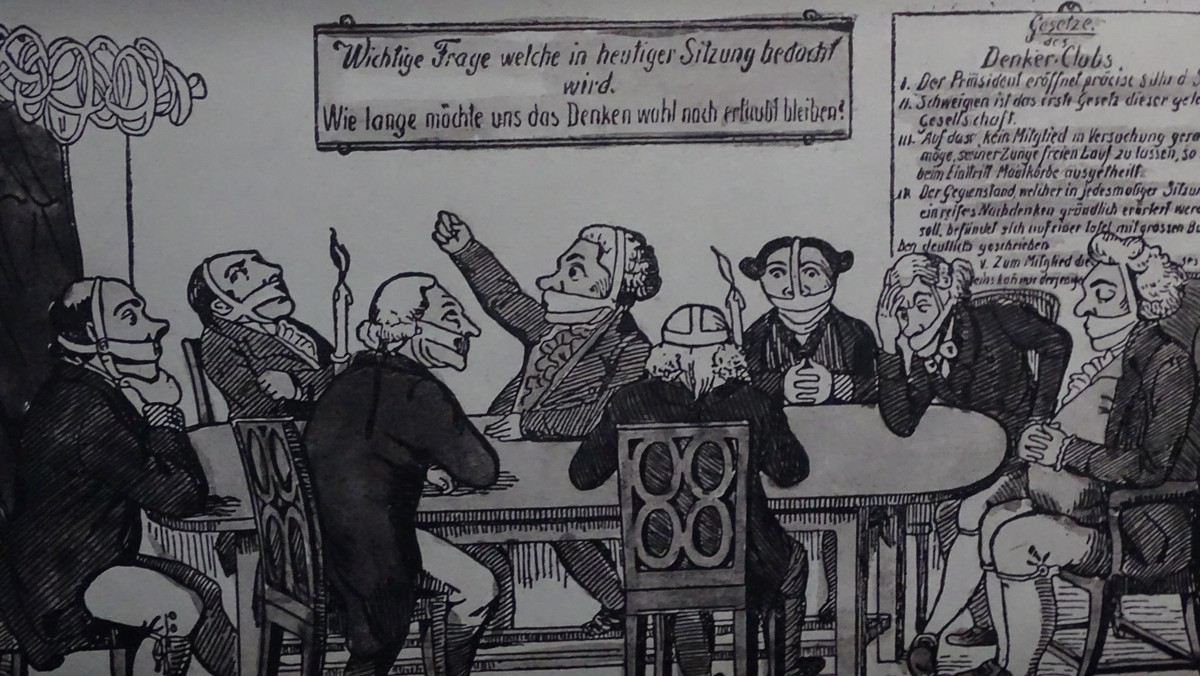 Wichtige Frage welche in heutiger Sitzung bedacht
wird.
Wie lange möchte uns das Denken wohl noch erlaubt bleiben?
Gesetze.
des
Denker-Clubs.
I. Der Präsident eröffnet präcise 8 Uhr d
II. Schweigen ist das erste Gesetz dieser
Gesellschaft.
III. Auf dass kein Mitglied in Versuchung
möge, seiner Zunge freien Lauf zu lassen, so
beim Eintritt Maulkörbe ausgetheilt.
IV. Der Gegenstand, welcher in jedesmaliger
ein reifes Nachdenken gründlich erörtert
soll, befindet sich auf einer Tafel mit grossen
ben deutlich geschrieben
V. Zum Mitglied
kann nur